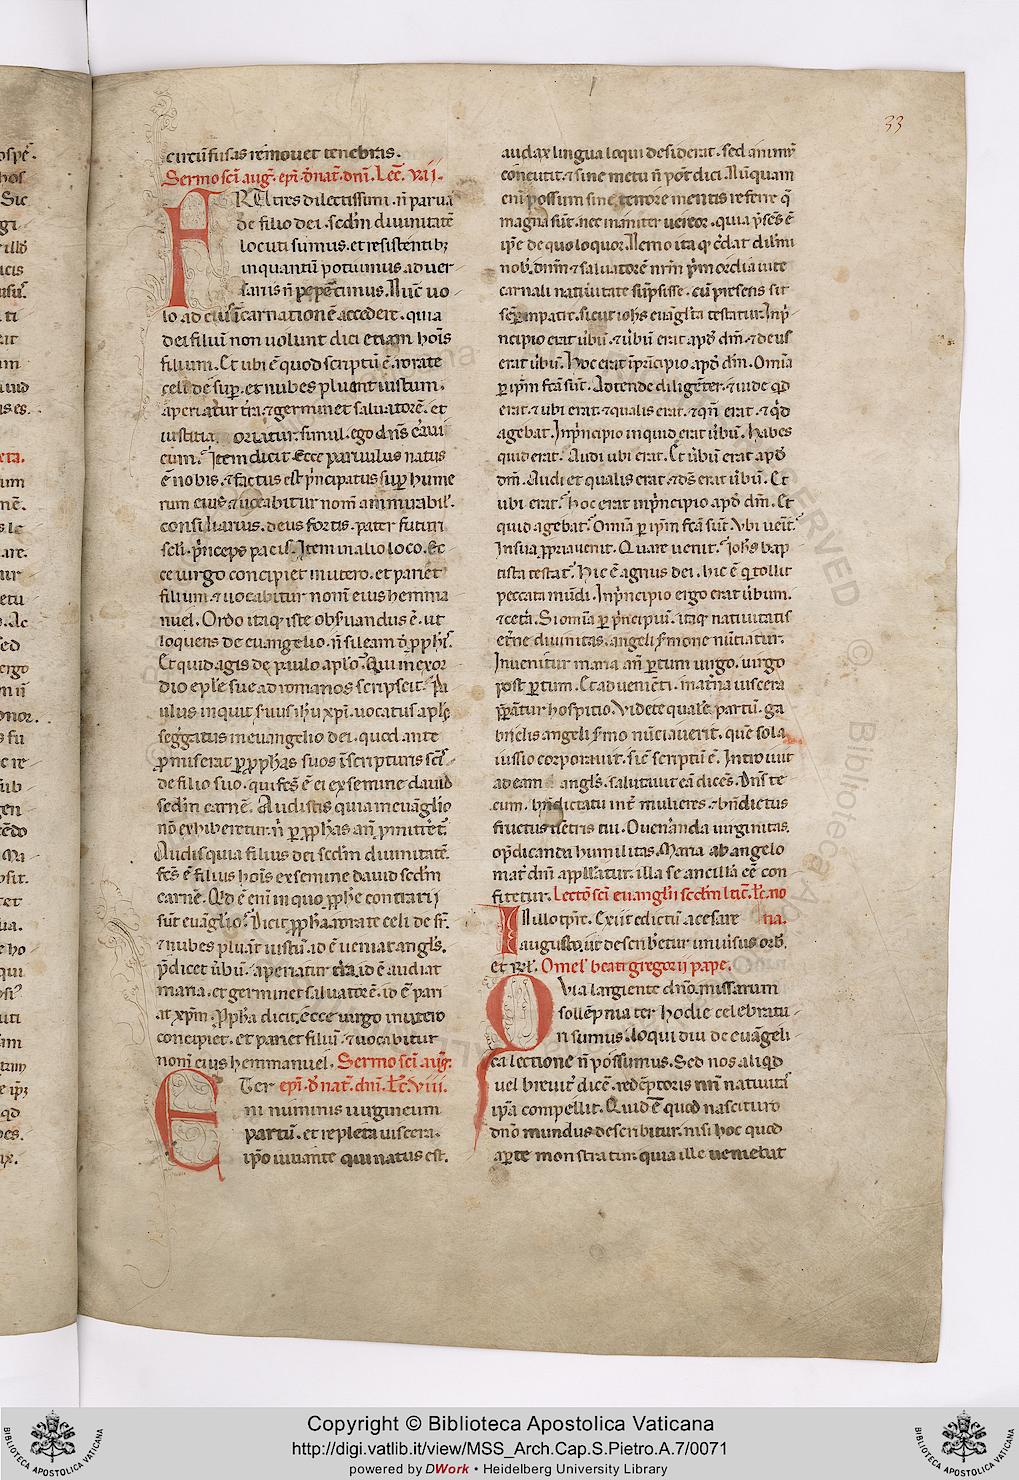 33
circu͞fusas remouet tenebras.
Sermo sc͞i aug͞. ep͞i. d͞ nat͞. dn͞i. Lec͞. vii.
FRATres dilectissimi. n͞ parua͞
de filio dei. scd͞m diuinitate͞
locuti sumus. et resistentib;
inquantu͞ potuimus aduer-
sariis n͞ pep͞cimus. Nu͞c uo
lo ad eius i͞carnatione͞ accedere. quia
dei filiu͞ non uolunt dici etiam ho͞is
filium. Et ubi e͞ quod scriptu͞ e͞. rorate
celi de sup͞. et nubes pluant iustum.
aperiatur t͞ra. ⁊ germinet saluatore͞. et
iustitia oriatur. simul. ego dn͞s c͞aui
eum. Item dicit Ecce paruulus natus
e͞ nobis. ⁊ factus est p͞ncipatus sup͞ hume
rum eius ⁊ uocabitur nom͞ ammirabil͞.
consiliarius. deus fortis. pater futuri
sc͞li. p͞nceps pacis. Item in alio loco. Ec-
ce uirgo concipiet in utero. et pariet
filium. ⁊ uocabitur nom͞ eius hemma
nuel. Ordo itaq; iste obs͞uandus e͞. ut
loquens de euangelio. n͞ sileam d͞ p͞ph͞s.
Et quid agis de paulo ap͞lo. Qui in exor
dio ep͞le sue ad romanos scripsit. Pa
ulus inquit s͞uus ih͞u xp͞i. uocatus ap͞ls
seggatus in euangelio dei. quod ante
p͞miserat p͞ p͞phas suos i͞ scripturis sc͞s
de filio suo. qui fc͞s e͞ ei ex semine dauid
scd͞m carne͞. Audistis quia in eua͞glio
no͞ exhiberetur. n͞ p͞ p͞phas an͞ p͞mitt͞et͞.
Audis quia filius dei scd͞m diuinitate͞.
fc͞s e͞ filius ho͞is ex semine dauid scd͞m
carne͞. Qd͞ e͞ eni͞ in quo p͞phe contrarii
su͞t eua͞glio. Dicit p͞pha. rorate celi de s͞r.
⁊ nubes plua͞t iustu͞. id e͞ ueniat angl͞s.
p͞dicet u͞bu͞. aperiatur t͞ra. id e͞ audiat
maria. et germinet saluatore͞. id e͞ pari
at xp͞m. P͞pha dicit. ecce uirgo in utero
concipiet. et pariet filiu͞. ⁊ uocabitur
nom͞ eius hemmanuel. Sermo sc͞i. aug͞.
ETer ep͞i. d͞ nat͞. dn͞i. Lc͞. viii.
ni numinis uirgineum
partu͞. et repleta uiscera.
ip͞o iuuante qui natus est.
audax lingua loqui desiderat. sed animu͞
concutit. ⁊ sine metu n͞ pot͞ dici. Nu͞quam
eni͞ possum sine tenore mentis referre q͞
magna su͞t. nec inaniter uereor. quia p͞ses e͞
ip͞e de quo loquor. Nemo itaq; c͞dat dil͞mi
nob͞. dn͞m ⁊ saluatore͞ nr͞m p͞mordia uite
carnali natiuitate su͞psisse. cu͞ presens sit
semp͞ in patre. sicut ioh͞s eua͞g͞lta testatur. In p͞
ncipio erat u͞bu͞. ⁊ u͞bu͞ erat apd͞ dm͞. ⁊ deus
erat u͞bu͞. Hoc erat i͞ p͞ncipio apd͞ dm͞. Om͞ia
p͞ ip͞m fc͞a su͞t. Adtende dilige͞ter. ⁊ uide qd͞
erat. ⁊ ubi erat. ⁊ qualis erat. ⁊ qn͞ erat. ⁊ qd͞
agebat. In p͞ncipio inquid erat u͞bu͞. Habes
quid erat. Audi ubi erat. Et u͞bu͞ erat apd͞
dm͞. Audi et qualis erat. ⁊ ds͞ erat u͞bu͞. Et
ubi erat. hoc erat in p͞ncipio apd͞ dm͞. Et
quid agebat. Om͞ia p͞ ip͞m fc͞a su͞t. Vbi uen͞t.
In sua p͞pria uenit. Quare uenit. ioh͞s bap
tista testat͞. Hic e͞ agnus dei. hic e͞ q͞ tollit
peccata mu͞di. In p͞ncipio ergo erat u͞bum.
⁊ cet͞a. Si om͞ia p͞ p͞ncipiu͞. itaq; natiuitatis
et͞ne diuinitas. angeli s͞mone nu͞tiatur.
Inuenitur maria an͞ p͞tum uirgo. uirgo
post p͞tum. Et aduenie͞ti. mat͞na uiscera
p͞para͞tur hospitio. Videte quale͞ partu͞. ga
brielis angeli s͞mo nu͞ciauerit. que͞ sola
iussio corporauit. sic͞ scriptu͞ e͞. Introiuit
ad eam angl͞s. salutauit ea͞ dice͞s. Dn͞s te
cum. bn͞dicta tu int͞ mulieres. ⁊ bn͞dictus
fructus ue͞tris tui. O uen͞anda uirginitas.
o p͞dicanda humilitas. Maria ab angelo
mat͞ dn͞i appellatur. illa se ancilla͞ ee͞ con
fitetur. Lectio sc͞i euangl͞ii scd͞m luca͞. Lc͞. no
In illo tp͞re. Exiit edictu͞ a cesare na.
augusto. ut describ͞etur uniu͞sus orb͞.
et Rl͞. Omel͞ beati gregorii pape.
QVia largiente dn͞o. missarum
sollempnia ter hodie celebratu
ri sumus. loqui diu de eua͞geli
ca lectione n͞ possumus. Sed nos aliqd͞
uel breuit͞ dice͞. rede͞ptoris nr͞i natiuita͞s
ip͞a compellit. Quid e͞ quod nascituro
dn͞o mundus describitur. nisi hoc quod
ap͞te monstratur. quia ille ueniebat
Copyright © Biblioteca Apostolica Vaticana
http://digi.vatlib.it/view/MSS_Arch.Cap.S.Pietro.A.7/0071
powered by DWork • Heidelberg University Library
BIBLIOTECA APOSTOLICA VATICANA
BIBLIOTECA APOSTOLICA VATICANA